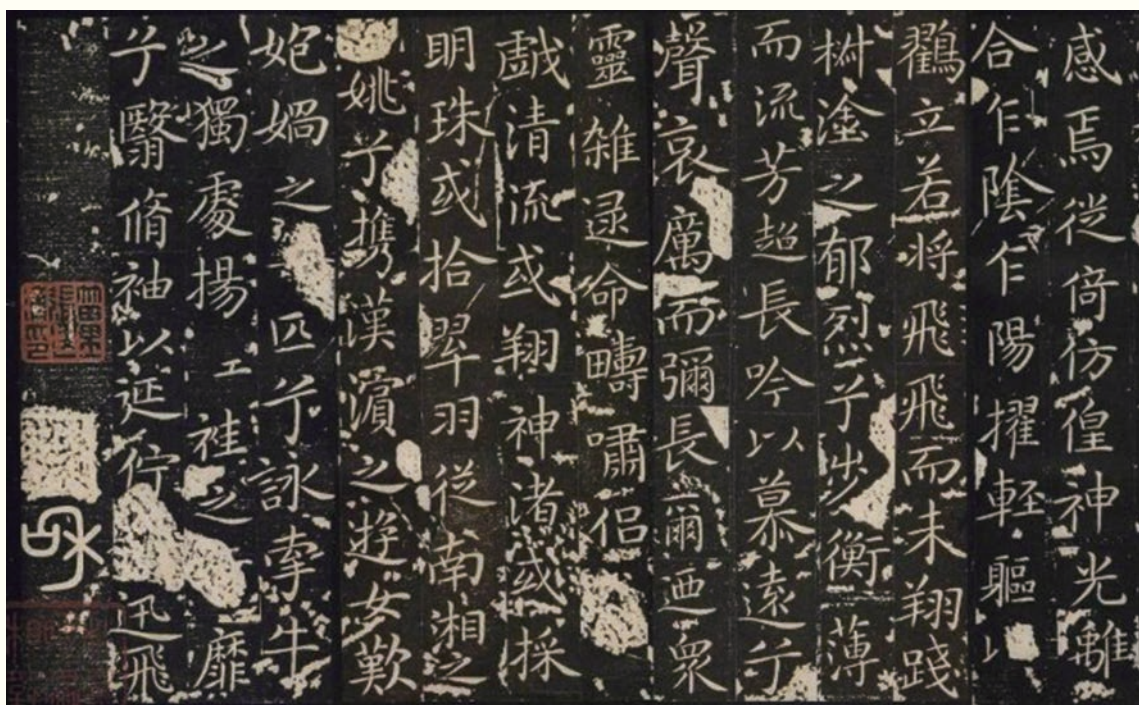 感焉徙倚仿偟神光離
合乍陰乍陽擢輕軀以
鸖立若将飛飛而未翔踐
椒塗之郁烈兮步衡薄
而流芳超長吟以慕遠兮
聲哀厲而彌長爾迺衆
靈雜遝命疇嘯侶
戲清流或翔神渚或採
明珠或拾翠羽從南湘之
姚兮攜漢濱之遊女歎
妑媧之匹兮詠牽牛
之獨處揚袿之靡
兮翳脩袖以延佇迅飛
和